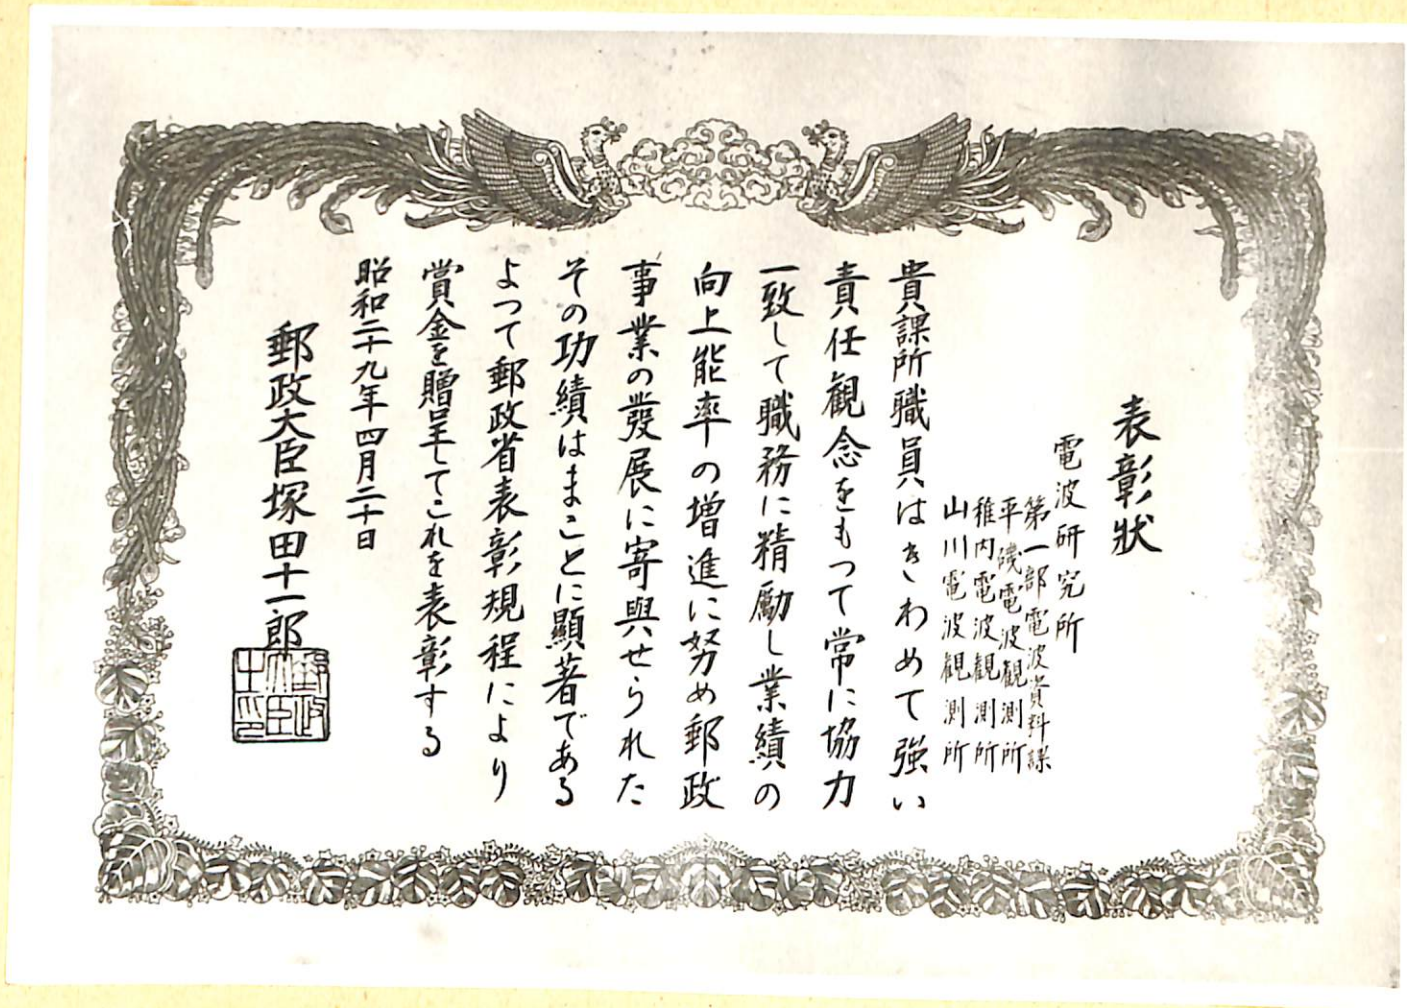 表彰狀
電波研究所
第一部電波資料課
平磯電波観測所
稚内電波観測所
山川電波観測所
貴課所職員はきわめて強い
責任観念をもつて常に協力
一致して職務に精勵し業績の
向上能率の増進に努め郵政
事業の發展に寄與せられた
その功績はまことに顯著である
よつて郵政省表彰規程により
賞金を贈呈してこれを表彰する
昭和二十九年四月二十日
郵政大臣塚田十一郎